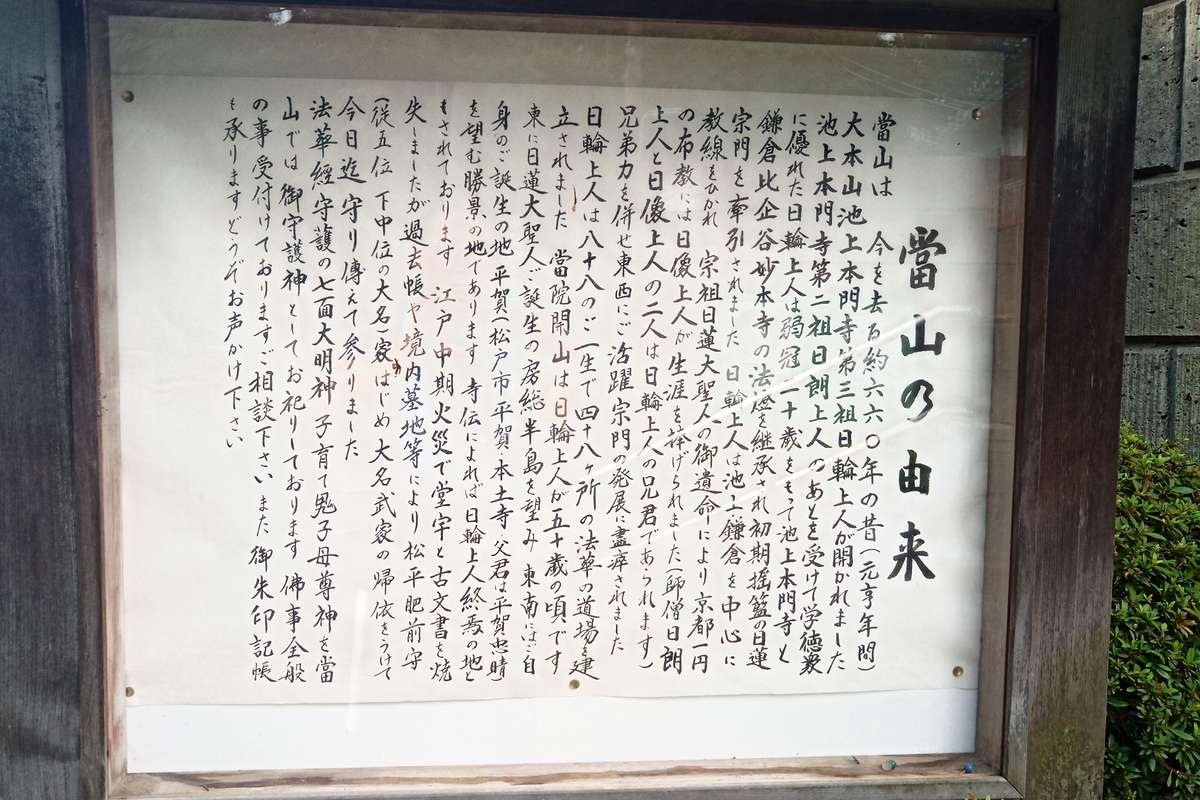 當山の由来
當山は 今を去る約六六〇年の昔(元亨年間)
大本山池上本門寺第三祖日輪上人が開かれました
池上本門寺第二祖日朗上人のあとを受けて学徳衆
に優れた日輪上人は弱冠二十歳をもって池上本門寺と
鎌倉比企谷妙本寺の法燈を継承され初期揺籃の日蓮
宗門を牽引されました 日輪上人は池上鎌倉を中心に
教線をひかれ 宗祖日蓮大聖人の御遺命により京都一円
の布教には日像上人が生涯を捧げられました(師僧日朗
上人と日像上人の二人は日輪上人の兄君であられます)
兄弟力を併せ東西にご活躍宗門の発展に盡瘁されました
日輪上人は八十八のご一生で四十八ヶ所の法華の道場を建
立されました 當院開山は日輪上人が五十歳の頃です
東に日蓮大聖人ご誕生の房総半島を望み 東南にはご自
身のご誕生の地 平賀(松戸市平賀 本土寺 父君は平賀忠晴)
を望む勝景の地であります 寺伝によれば日輪上人終焉の地と
もされております 江戸中期火災で堂宇と古文書を焼
失しましたが過去帳や境内墓地等により松平肥前守
(従五位 下中位の大名)家はじめ 大名武家の帰依をうけて
今日迄守り傳えて参りました
法華経守護の七面大明神 子育て鬼子母尊神を當
山では 御守護神としてお祀りしております 佛事全般
の事受付けておりますご相談下さい また 御朱印記帳
も承りますどうぞお声かけ下さい